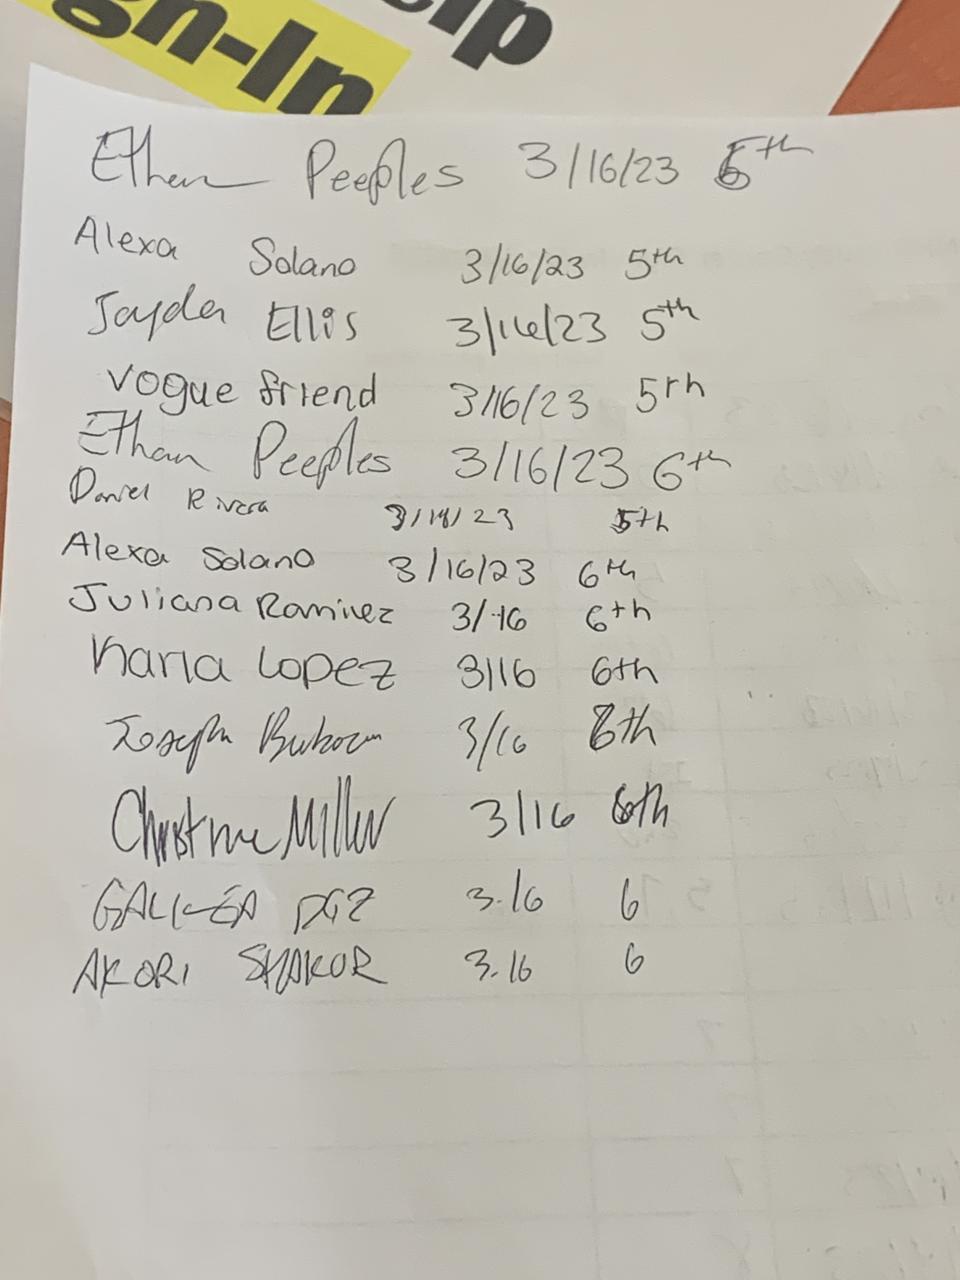 elp
gn-In
Ethan Peeples 3/16/23 5th
Alexa Solano 3/16/23 5th
Jayden Ellis 3/16/23 5th
Vogue friend 3/16/23 5rh
Ethan Peeples 3/16/23 6th
Daniel Rivera 23 5th
Alexa Solano 3/16/23 6th
Juliana Ramirez 3/16 6th
Karla Lopez 3/16 6th
Joseph 3/16 6th
Christine Miller 3/16 6th
3.16 6
AKORI SHAKOR 3.16 6